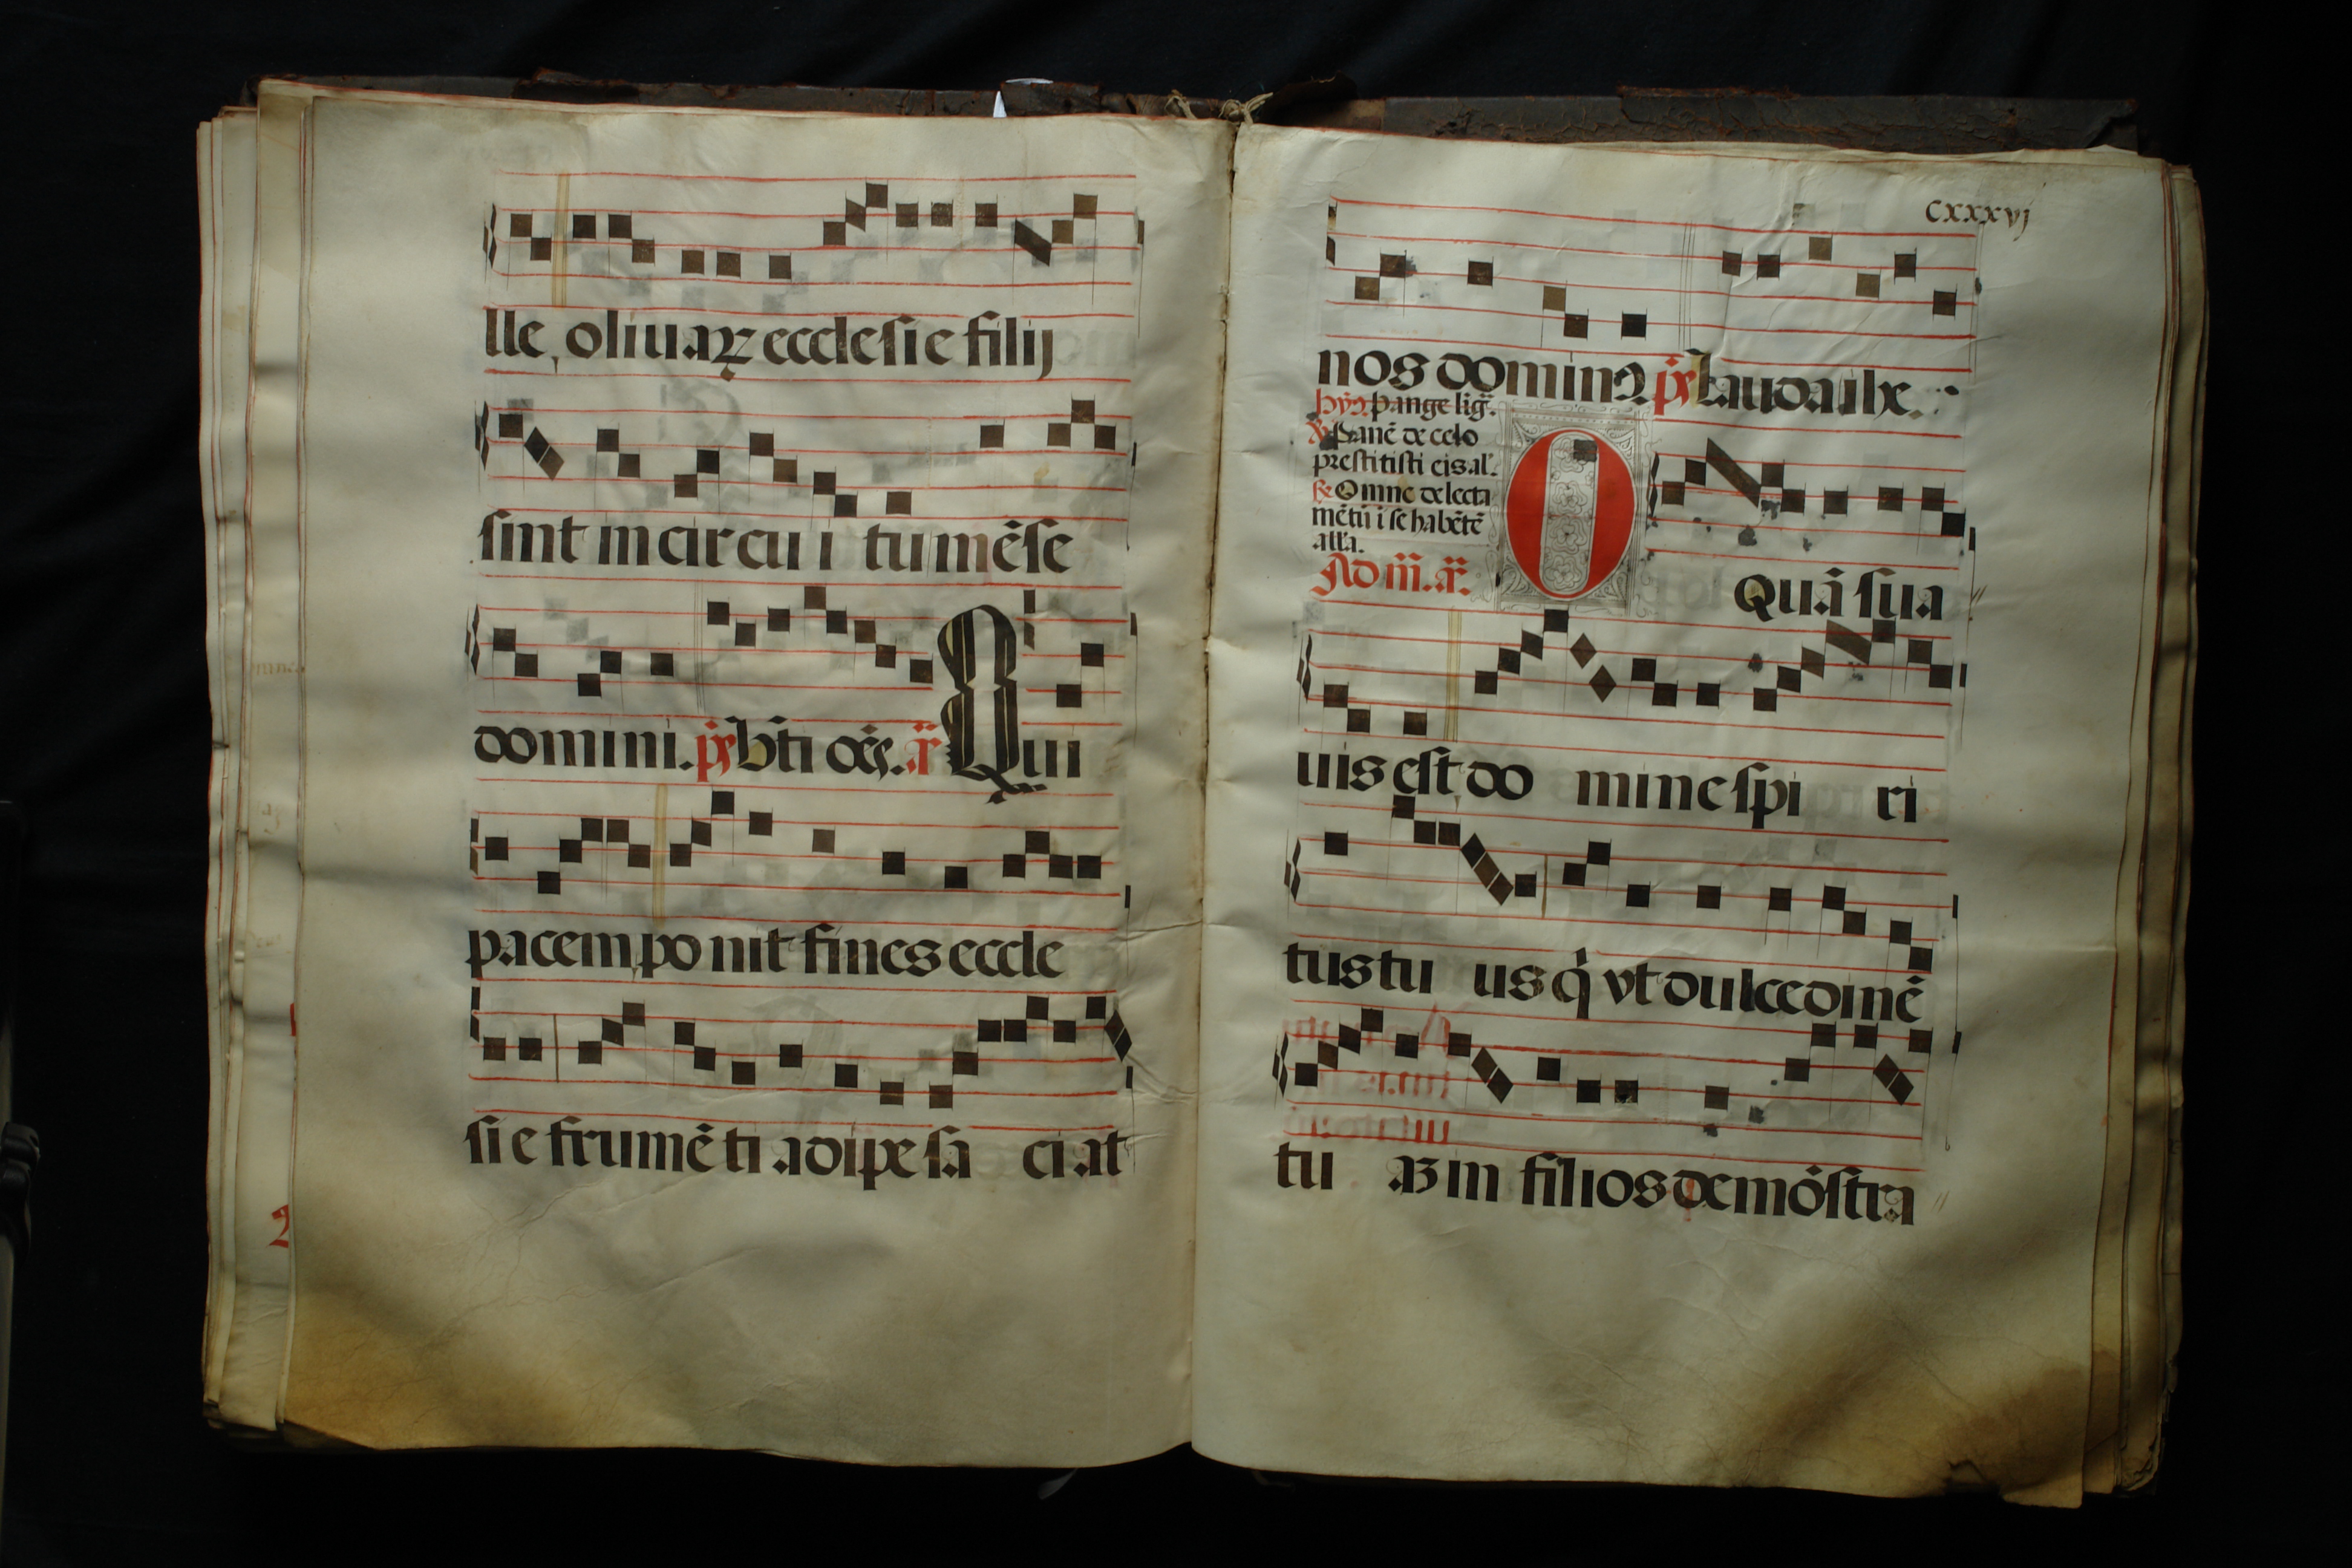 lle oliuaꝝ ecclesie filij
sint in circu i tu mẽse
domini. ps̃ Bt̃i oẽs. añ Qui
pacem po nit fines eccle
si e frumẽ ti adipe sa ciat
cxxxvj
nos dominꝰ ps̃ Lauda ihe.
hyꝰ pange ligᷓ.
Panẽ de celo
prestitisti eis al'.
℟ Omne delecta
mẽtũ ĩ se habẽtẽ
all'a.
Ad m̃. añ.
O Quã sua
uis est do mine spi ri
tus tu us q̇ vt dulcedinẽ
tu aʒ in filios demõstra